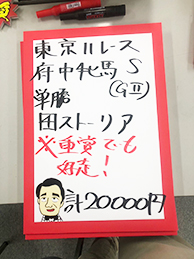 東京11レース
府中牝馬S
(GⅡ)
単勝
団ストーリア
※重賞でも
好走!
計20000円